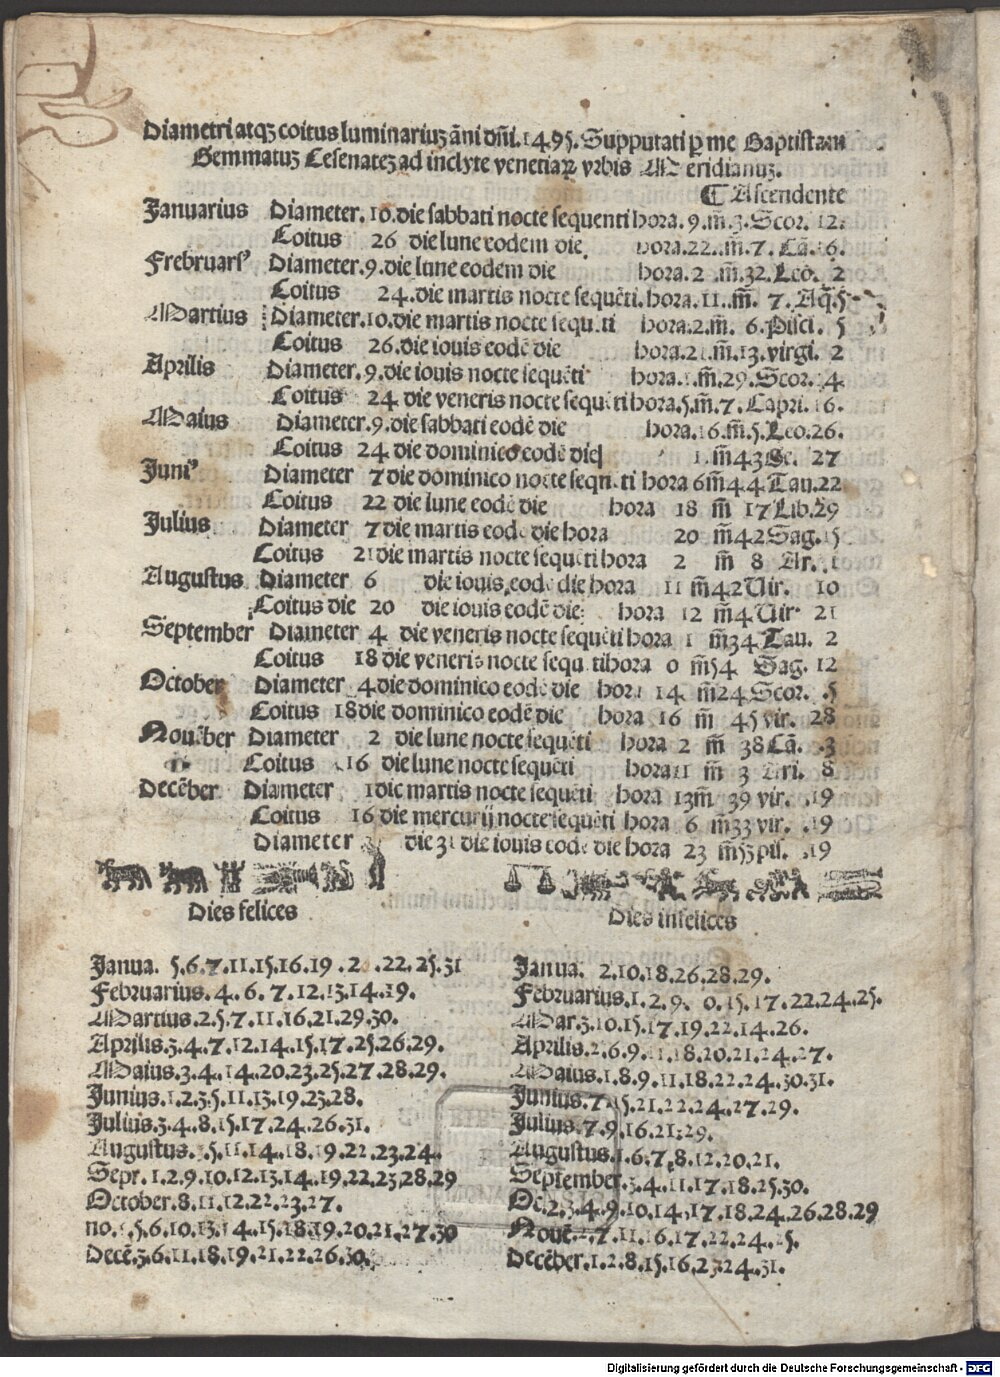 Diametri atqȝ coitus luminariuȝ āni dn̄i.1495. Supputati ꝑ me Baptistam
Gemmatuȝ Cesenateȝ ad inclyte venetiaꝝ vrbis Meridianuȝ.
¶ Ascendente
Januarius Diameter.10.die sabbati nocte sequenti hora.9.m̄.3.Scor. 12.
Coitus 26 die lune eodem die hora.22.m̄.7. Cā.16.
Frebruarsꝰ Diameter.9.die lune eodem die hora.2 .m̄.32.Leo. 2
Coitus 24.die martis nocte sequēti.hora.11.m̄. 7.Aq̄.5
Martius Diameter.10.die martis nocte sequēti hora.2.m̄. 6.Pisci. 5
Coitus 26.die iouis eodē die hora.21.m̄.13.virgi. 2
Aprilis Diameter.9.die iouis nocte sequēti hora.1.m̄.29.Scor. 4
Coitus 24 die veneris nocte sequēti hora.5.m̄.7.Capri.16.
Maius Diameter.9.die sabbati eodē die hora.16.m̄.5.Leo.26.
Coitus 24 die dominico eodē die 1.m̄43 Ge. 27
Juniꝰ Diameter 7 die dominico nocte sequēti hora 6 m̄44 Tau.22
Coitus 22 die lune eodē die hora 18 m̄ 17 Lib.29
Julius Diameter 7 die martis eodē die hora 20 m̄42 Sag.15
Coitus 21 die martis nocte sequēti hora 2 m̄ 8 Ar.
Augustus Diameter 6 die iouis eodē die hora 11 m̄42 Uir. 10
Coitus die 20 die iouis eodē die hora 12 m̄4 Uir 21
September Diameter 4 die veneris nocte sequēti hora 1 m̄34 Tau. 2
Coitus 18 die veneris nocte sequēti hora 0 m̄54 Sag. 12
October Diameter 4 die dominico eodē die hora 14 m̄24 Scor. 5
Coitus 18 die dominico eodē die hora 16 m̄ 45 vir. 28
Nouēber Diameter 2 die lune nocte sequēti hora 2 m̄ 38 Cā. .3
Coitus .16 die lune nocte sequēti hora 11 m̄ 3 Ari. 8
Decēber Diameter 1 die martis nocte sequēti hora 13 m̄ 39 vir. .19
Coitus 16 die mercurij nocte sequēti hora 6 m̄33 vir. .19
Diameter die 31 die iouis eodē die hora 23 m̄53 pis. .19
Dies felices
Janua. 5.6.7.11.15.16.19 .2 .22.25.31
Februarius.4.6.7.12.13.14.19.
Martius.2.5.7.11.16.21.29.30.
Aprilis.3.4.7.12.14.15.17.25.26.29.
Maius.3.4.14.20.23.25.27.28.29.
Junius.1.2.3.5.11.13.19.23.28.
Julius.3.4.8.15.17.24.26.31.
Augustus. .5.11.14.18.19.22.23.24.
Sepr.1.2.9.10.12.13.14.19.22.23.28.29
October.8.11.12.22.23.27.
no. .5.6.10.13.14.15.18.19.20.21.27.30
Decē.3.6.11.18.19.21.22.26.30.
Dies infelices
Janua. 2.10.18.26.28.29.
Februarius.1.2.9. 0.15.17.22.24.25.
Mar.3.10.15.17.19.22.14.26.
Aprilis.2.6.9.11.18.20.21.24.27.
Maius.1.8.9.11.18.22.24.30.31.
Junius.7.15.21.22.24.27.29.
Julius.7.9.16.21.29.
Augustus.1.6.7.8.12.20.21.
September.3.4.11.17.18.25.30.
Oc.2.3.4.9.10.14.17.18.24.26.28.29
Nouē.2.7.11.16.17.22.24. 5.
Decēber.1.2.8.15.16.23 24.31.
Digitalisierung gefördert durch die Deutsche Forschungsgemeinschaft - DFG